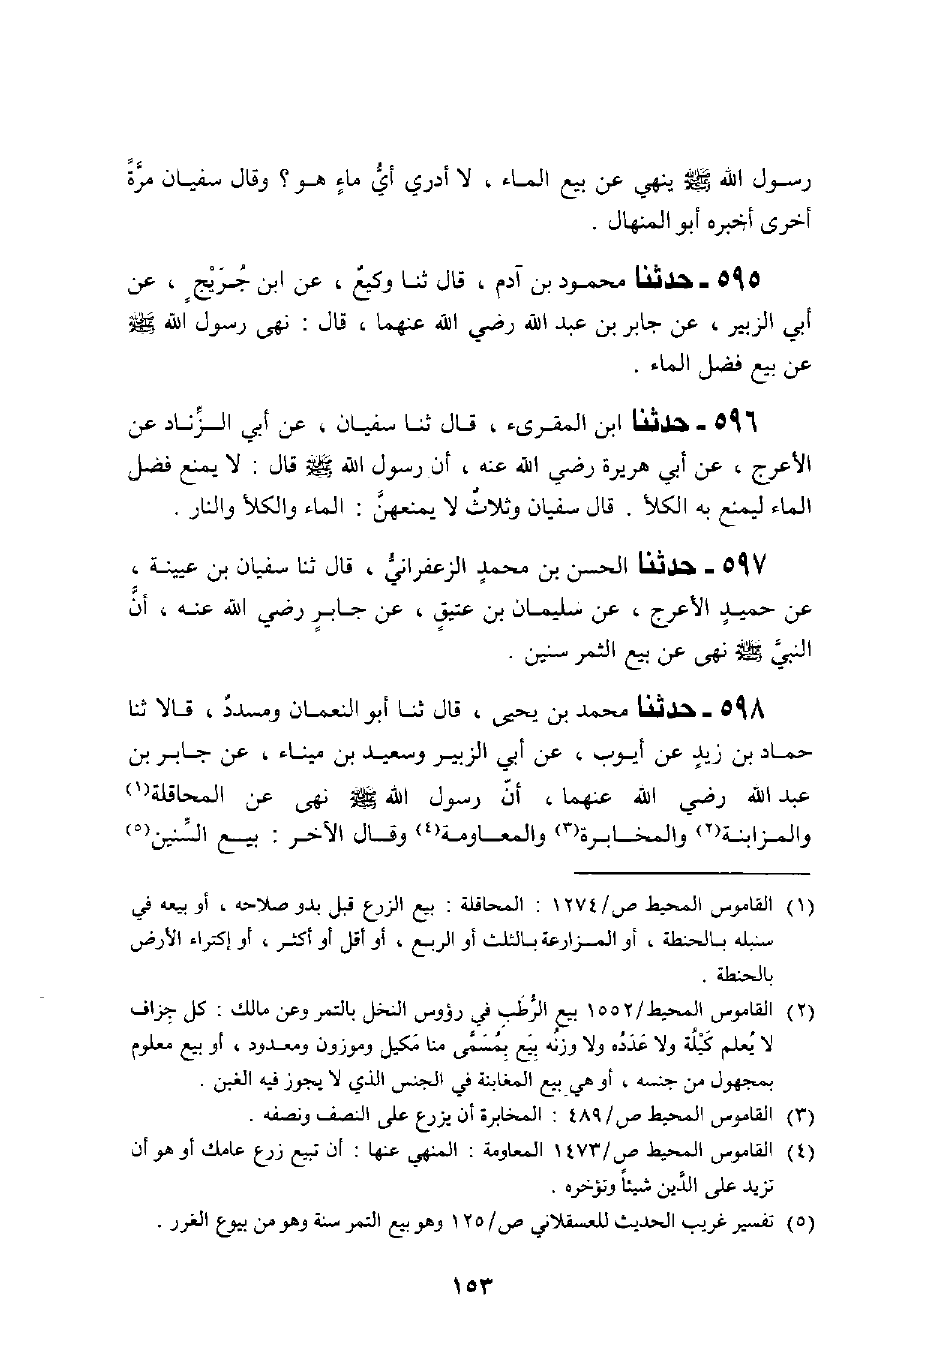 رسول الله ﷺ ينهي عن بيع الماء ، لا أدري أيُّ ماءٍ هو ؟ وقال سفيان مرَّةً
أخرى أخبره أبو المنهال .
٥٩٥ ـ حدثنا محمود بن آدم ، قال ثنا وكيعٌ ، عن ابن جُرَيْجٍ ، عن
أبي الزبير ، عن جابر بن عبد الله رضي الله عنهما ، قال : نهى رسول الله ﷺ
عن بيع فضل الماء .
٥٩٦ ـ حدثنا ابن المقرىء ، قال ثنا سفيان ، عن أبي الزِّناد عن
الأعرج ، عن أبي هريرة رضي الله عنه ، أن رسول الله ﷺ قال : لا يمنع فضل
الماء ليمنع به الكلأ . قال سفيان وثلاثٌ لا يمنعهنَّ : الماء والكلأ والنار .
٥٩٧ ـ حدثنا الحسن بن محمدٍ الزعفرانيُّ ، قال ثنا سفيان بن عيينة ،
عن حميدٍ الأعرج ، عن سليمان بن عتيقٍ ، عن جابرٍ رضي الله عنه ، أنَّ
النبيَّ ﷺ نهى عن بيع الثمر سنين .
٥٩٨ ـ حدثنا محمد بن يحيى ، قال ثنا أبو النعمان ومسددٌ ، قالا ثنا
حماد بن زيدٍ عن أيوب ، عن أبي الزبير وسعيد بن ميناء ، عن جابر بن
عبد الله رضي الله عنهما ، أنّ رسول الله ﷺ نهى عن المحاقلة(١)
والمزابنة(٢) والمخابرة(٣) والمعاومة(٤) وقال الآخر : بيع السِّنين(٥)
(١) القاموس المحيط ص/١٢٧٤ : المحاقلة : بيع الزرع قبل بدو صلاحه ، أو بيعه في
سنبله بالحنطة ، أو المزارعة بالثلث أو الربع ، أو أقل أو أكثر ، أو إكتراء الأرض
بالحنطة .
(٢) القاموس المحيط/١٥٥٢ بيع الرُّطَبِ في رؤوس النخل بالتمر وعن مالك : كل جِزاف
لا يُعلم كَيْلُه ولا عَدَدُه ولا وزنُه بِيَع بِمُسَمَّى منا مَكيل وموزون ومعدود ، أو بيع معلوم
بمجهول من جنسه ، أو هي بيع المغابنة في الجنس الذي لا يجوز فيه الغبن .
(٣) القاموس المحيط ص/٤٨٩ : المخابرة أن يزرع على النصف ونصفه .
(٤) القاموس المحيط ص/١٤٧٣ المعاومة : المنهي عنها : أن تبيع زرع عامك أو هو أن
تزيد على الدَّين شيئاً وتؤخره .
(٥) تفسير غريب الحديث للعسقلاني ص/١٢٥ وهو بيع التمر سنة وهو من بيوع الغرر .
١٥٣